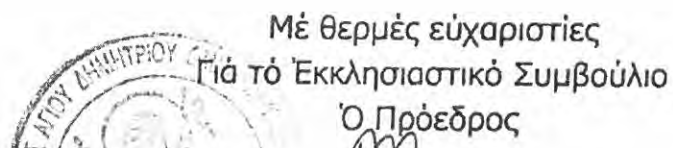 Μέ θερμές εὐχαριστίες
Γιά τό Ἐκκλησιαστικό Συμβούλιο
Ὁ Πρόεδρος
ΑΓΙΟΥ ΔΗΜΗΤΡΙΟΥ